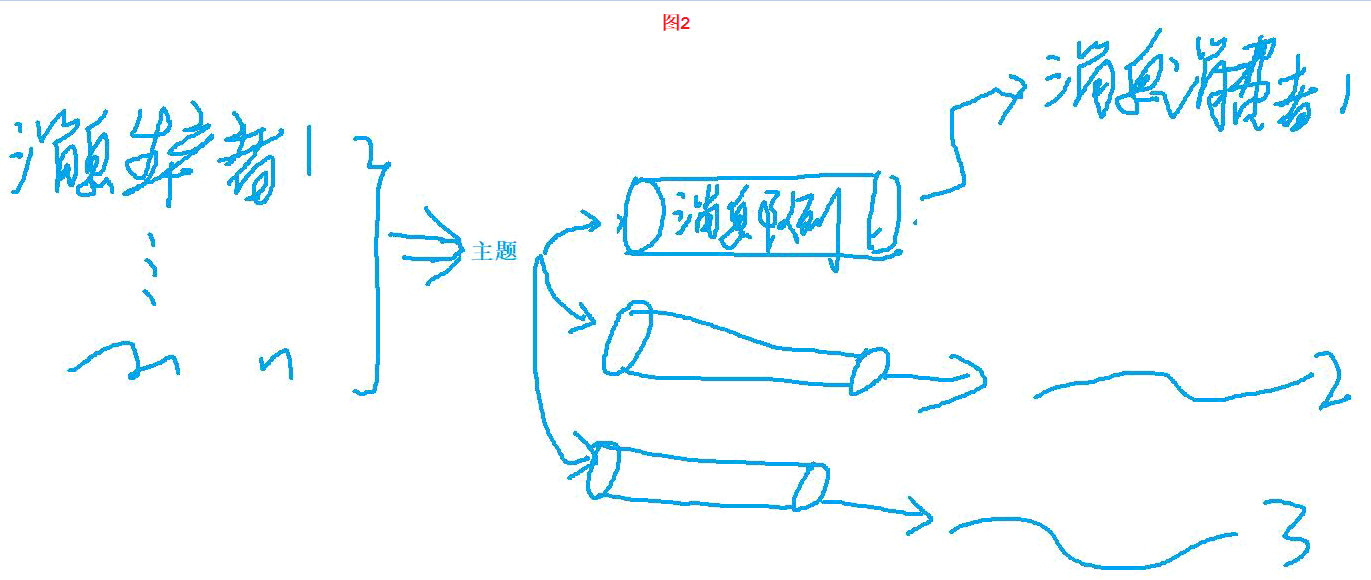 图2
消息生产者1
n
主题
消息队列
消息消费者1
2
3